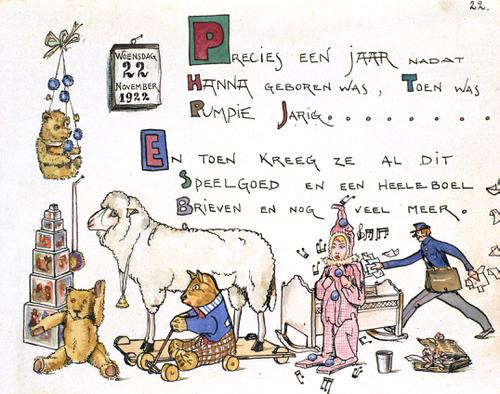 22.
WOENSDAG
22
NOVEMBER
1922
PRECIES EEN JAAR NADAT
HANNA GEBOREN WAS, TOEN WAS
PUMPIE JARIG........
EN TOEN KREEG ZE AL DIT
SPEELGOED EN EEN HEELE BOEL
BRIEVEN EN NOG VEEL MEER.